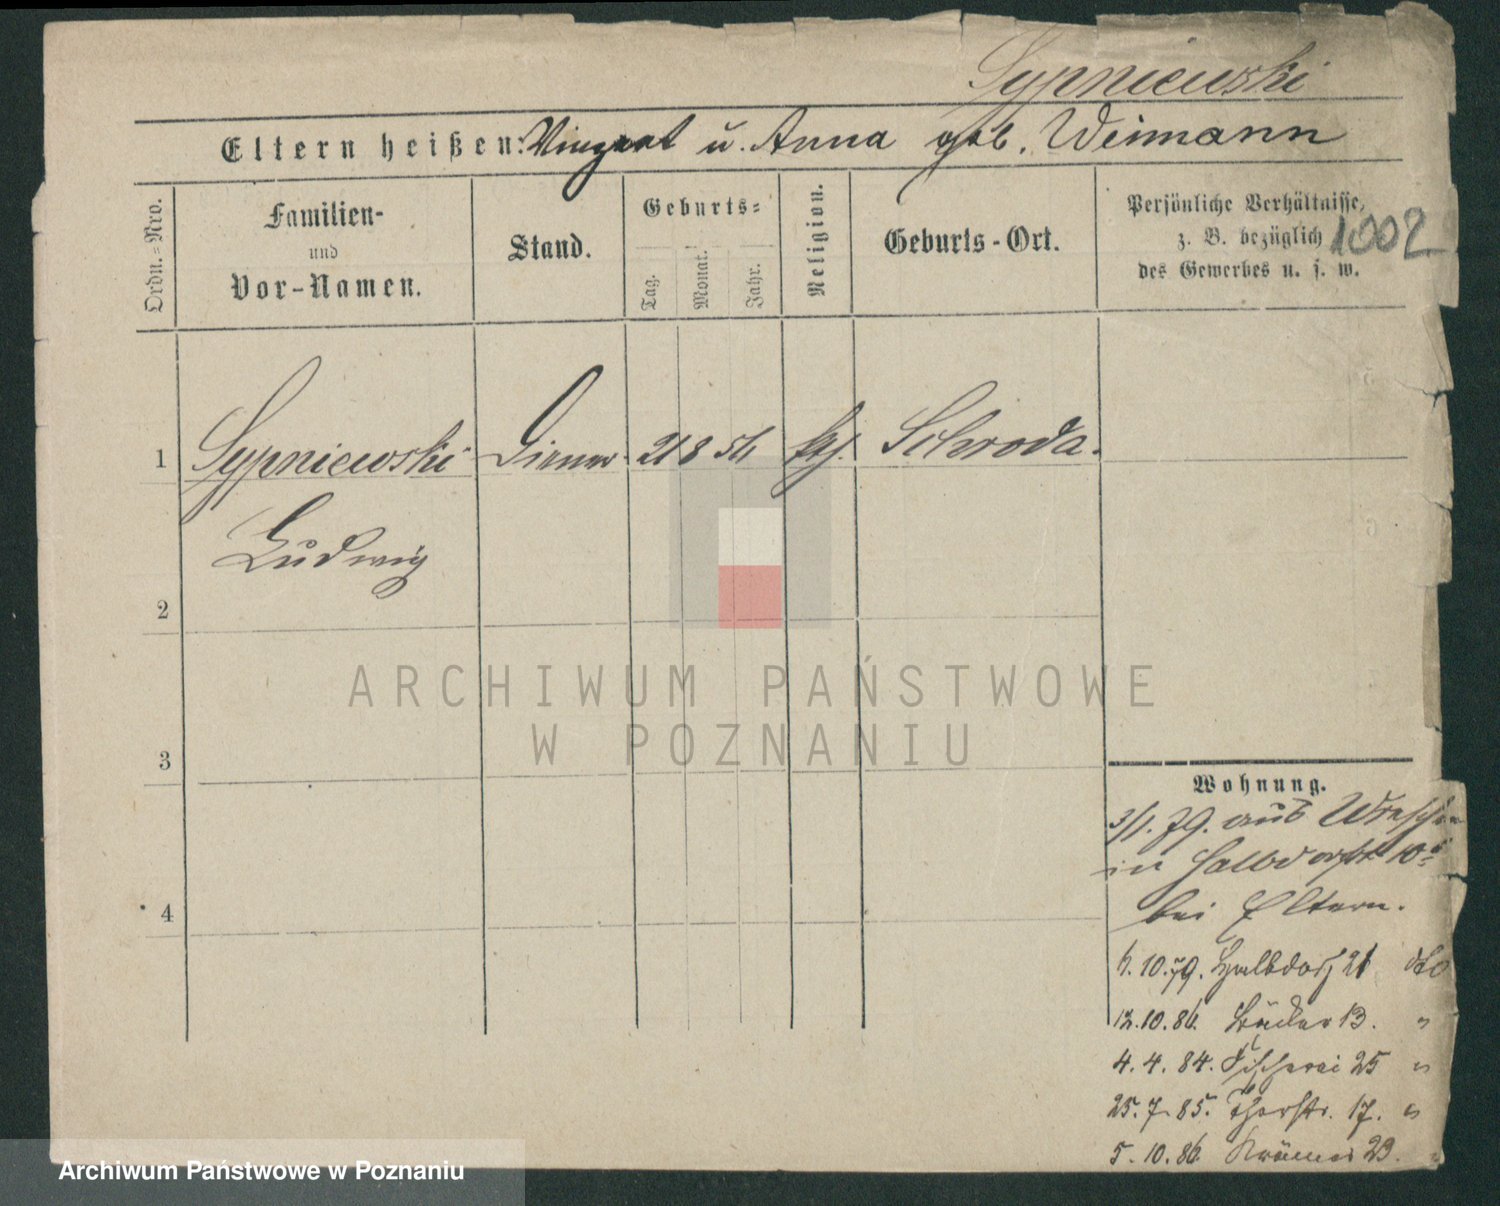 Sypniewski
Eltern heißen: Vinzent u. Anna geb. Weimann
Ordn.=Nro.
Familien-
und
Vor-Namen.
Stand.
Geburts=
Tag.
Monat.
Jahr.
Religion.
Geburts-Ort.
Persönliche Verhältnisse,
z. B. bezüglich
des Gewerbes u. s. w.
1002
1 Sypniewski Diener 21 8 56 kth. Schroda.
Ludwig
2
3
4
Wohnung.
3/1. 79. aus Wreschen
in Halbdorfstr 10
bei Eltern.
6.10.79. Halbdorf 21 dto
12.10.86. Bäcker 13. "
4. 4. 84. Fischerei 25 "
25. 7. 85. Thorstr. 17. "
5. 10. 86. Krämer 23. "
ARCHIWUM PAŃSTWOWE
W POZNANIU
Archiwum Państwowe w Poznaniu